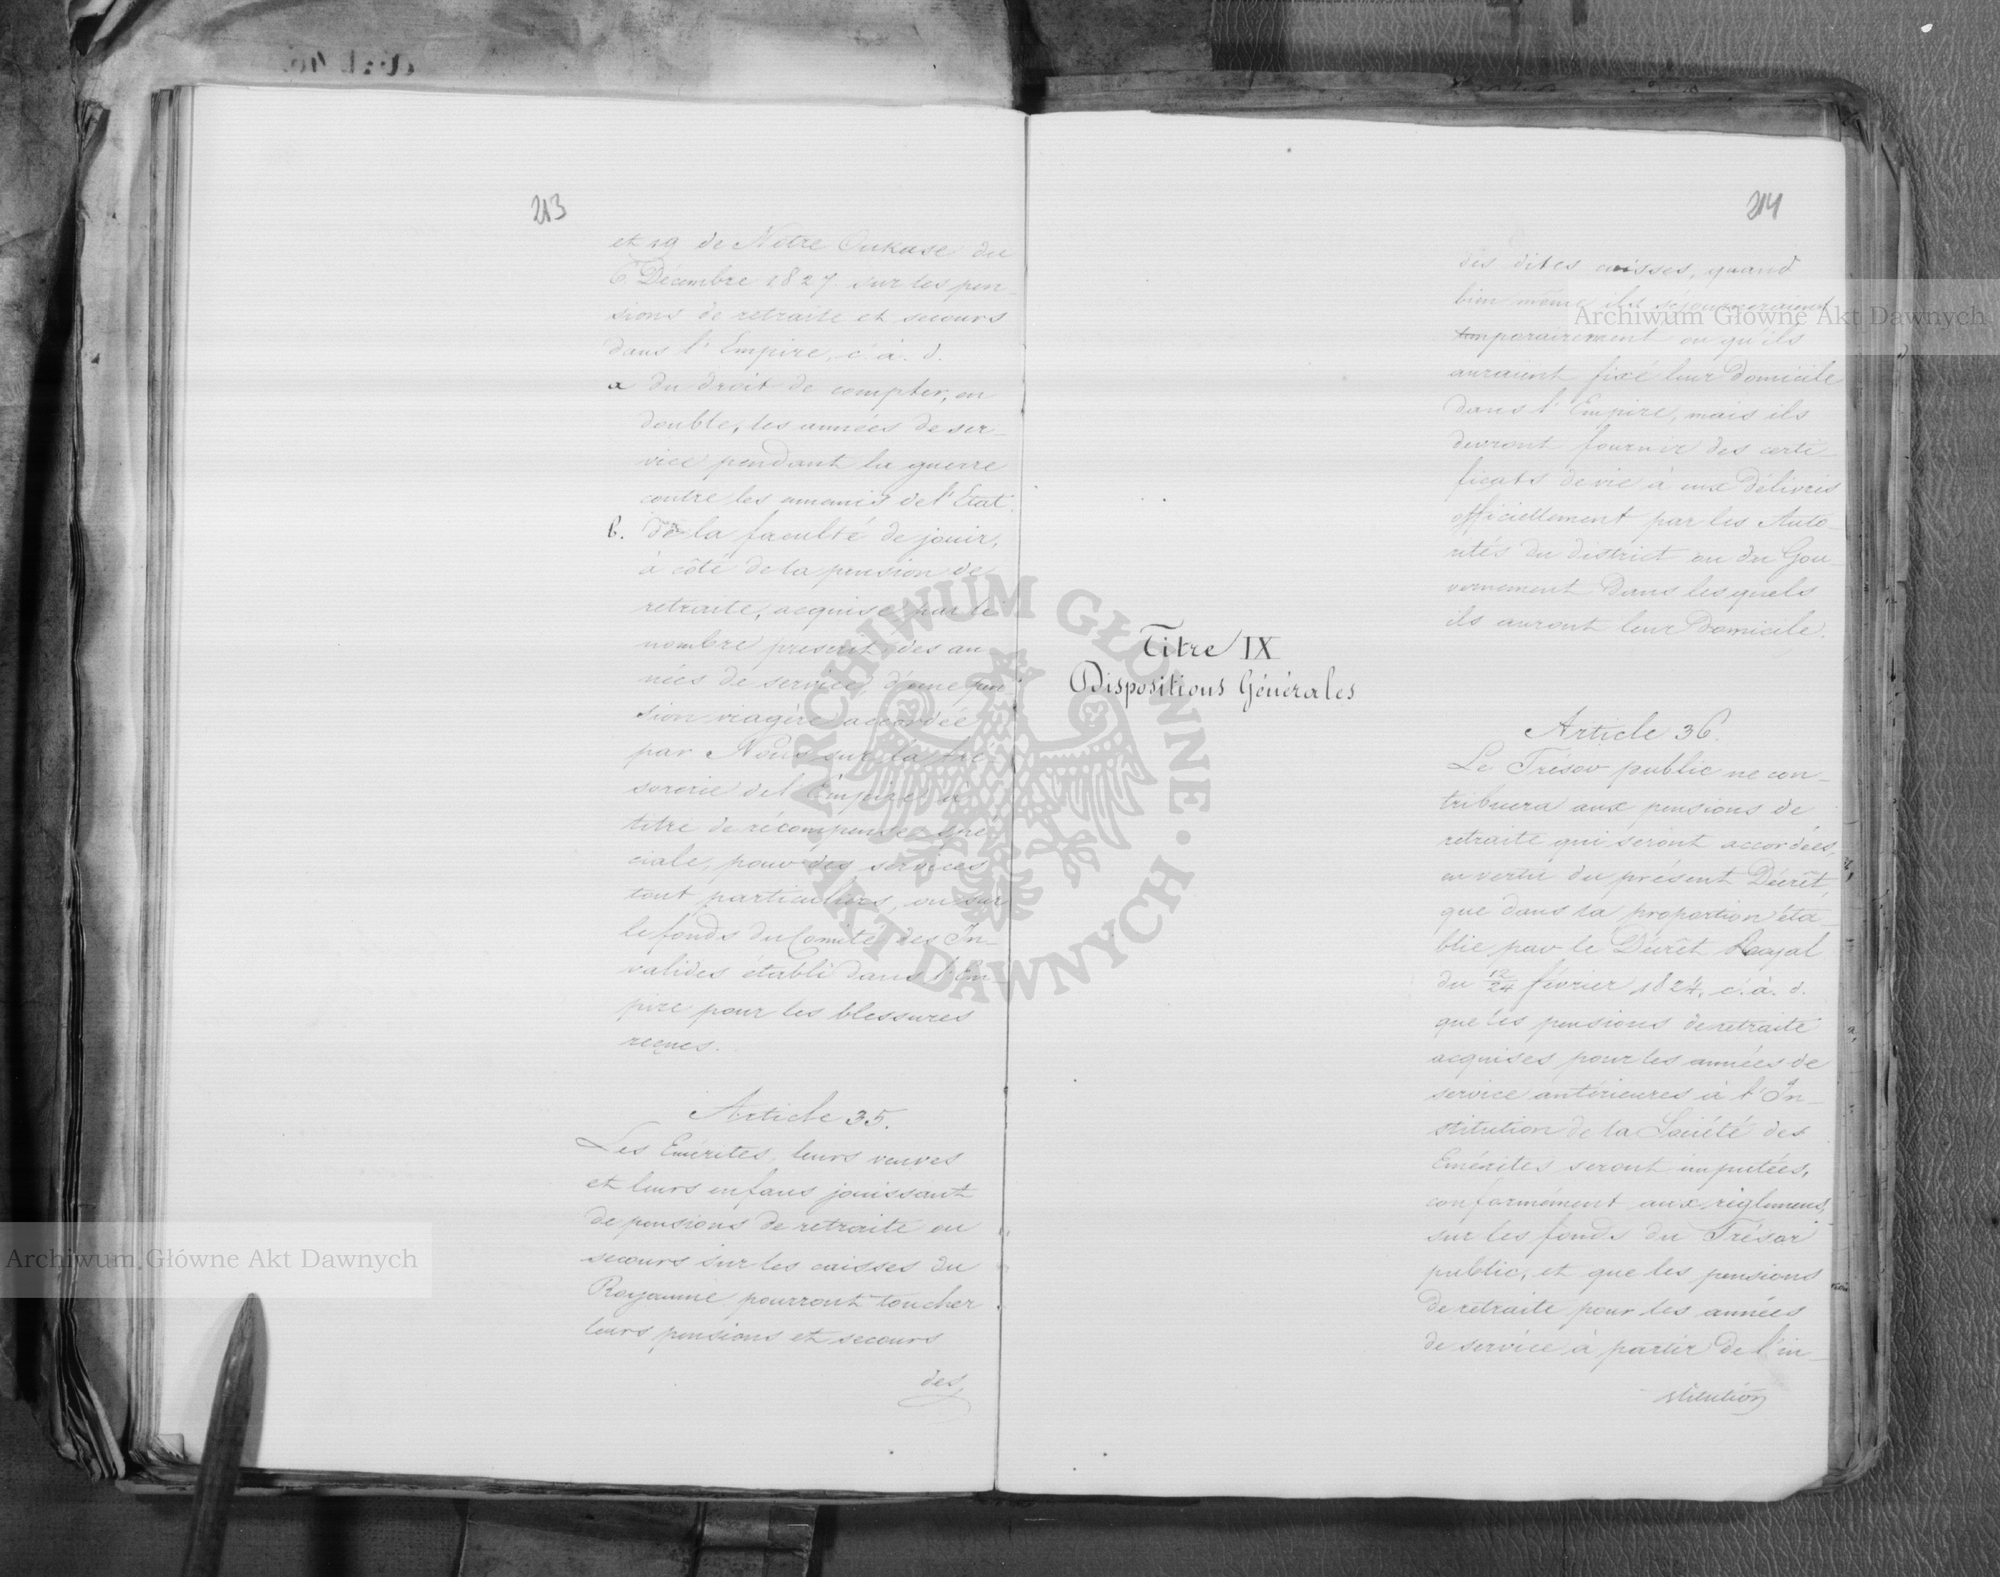 213
et 19 de Notre Oukase du
6 Décembre 1827 sur les pen_
sions de retraite et secours
dans l'Empire, c. à. d.
a du droit de compter, en
double, les années de ser_
vice pendant la guerre
contre les ennemis de l'Etat.
b. de la faculté de jouir,
à côté de la pension de
retraite, acquise par le
nombre prescrit des an
nées de service, d'une pen
sion viagère accordée
par Nous sur la tré
sorerie de l'Empire à
titre de récompense spé
ciale, pour des services
tout particuliers, ou sur
le fonds du Comité des In_
valides établi dans l'Em_
pire pour les blessures
reçues.
Article 35.
Les Emérites, leurs veuves
et leurs enfans jouissant
de pensions de retraite ou
secours sur les caisses du
Royaume pourront toucher
leurs pensions et secours
des
214
des dites caisses, quand
bien même ils séjourneraient
temporairement ou qu'ils
auraient fixé leur domicile
dans l'Empire, mais ils
devront fournir des certi_
ficats de vie à eux délivrés
officiellement par les Auto_
rités du district ou du Gou_
vernement dans lesquels
ils auront leur domicile.
Titre IX
Dispositions Générales
Article 36.
Le Trésor public ne con_
tribuera aux pensions de
retraite qui seront accordées,
en vertu du présent Décrêt,
que dans la proportion éta_
blie par le Décrêt Royal
du 12/24 février 1824, c. à. d.
que les pensions de retraite
acquises pour les années de
service antérieures à l'In_
stitution de la Société des
Emérites seront imputées,
conformément aux règlemens,
sur les fonds du Trésor
public, et que les pensions
de retraite pour les années
de service à partir de l'in_
stitution
Archiwum Główne Akt Dawnych
Archiwum Główne Akt Dawnych
ARCHIWUM GŁÓWNE · AKT DAWNYCH ·